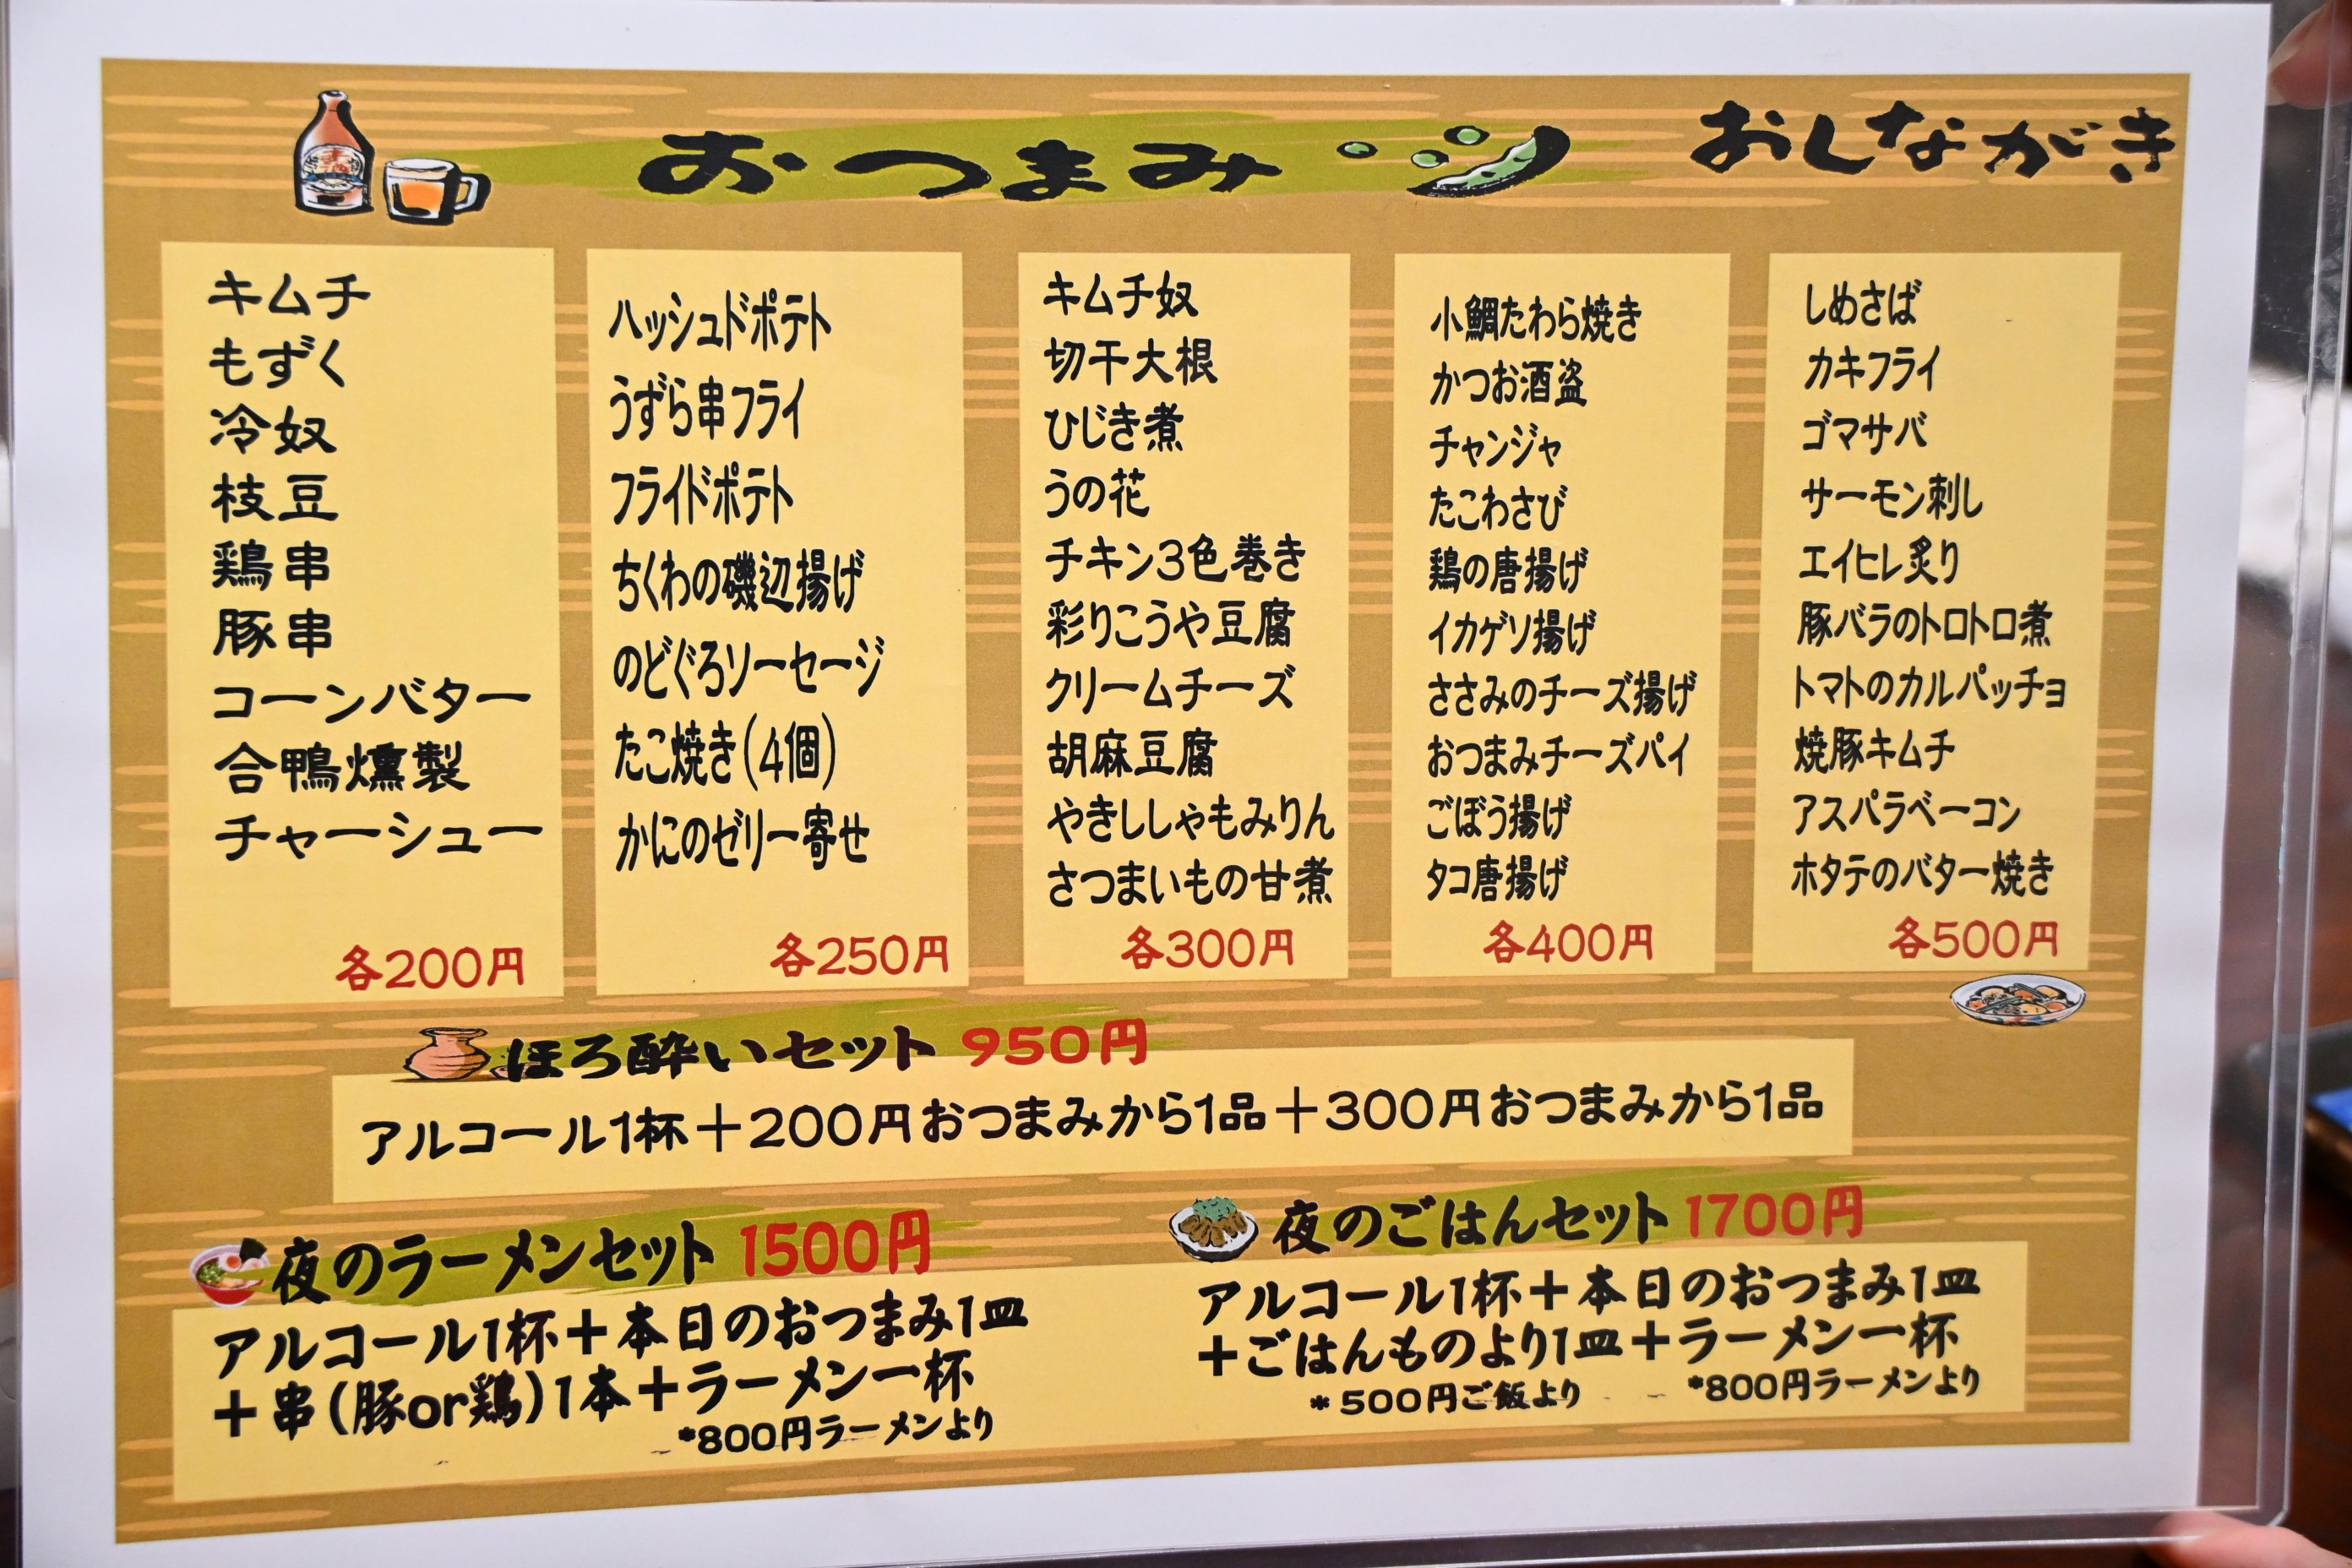 おつまみ
おしながき
キムチ
もずく
冷奴
枝豆
鶏串
豚串
コーンバター
合鴨燻製
チャーシュー
各200円
ハッシュドポテト
うずら串フライ
フライドポテト
ちくわの磯辺揚げ
のどぐろソーセージ
たこ焼き(4個)
かにのゼリー寄せ
各250円
キムチ奴
切干大根
ひじき煮
うの花
チキン3色巻き
彩りこうや豆腐
クリームチーズ
胡麻豆腐
やきししゃもみりん
さつまいもの甘煮
各300円
小鯛たわら焼き
かつお酒盗
チャンジャ
たこわさび
鶏の唐揚げ
イカゲソ揚げ
ささみのチーズ揚げ
おつまみチーズパイ
ごぼう揚げ
タコ唐揚げ
各400円
しめさば
カキフライ
ゴマサバ
サーモン刺し
エイヒレ炙り
豚バラのトロトロ煮
トマトのカルパッチョ
焼豚キムチ
アスパラベーコン
ホタテのバター焼き
各500円
ほろ酔いセット 950円
アルコール1杯＋200円おつまみから1品＋300円おつまみから1品
夜のラーメンセット 1500円
アルコール1杯＋本日のおつまみ1皿
＋串(豚or鶏)1本＋ラーメン一杯
*800円ラーメンより
夜のごはんセット 1700円
アルコール1杯＋本日のおつまみ1皿
＋ごはんものより1皿＋ラーメン一杯
*500円ご飯より *800円ラーメンより